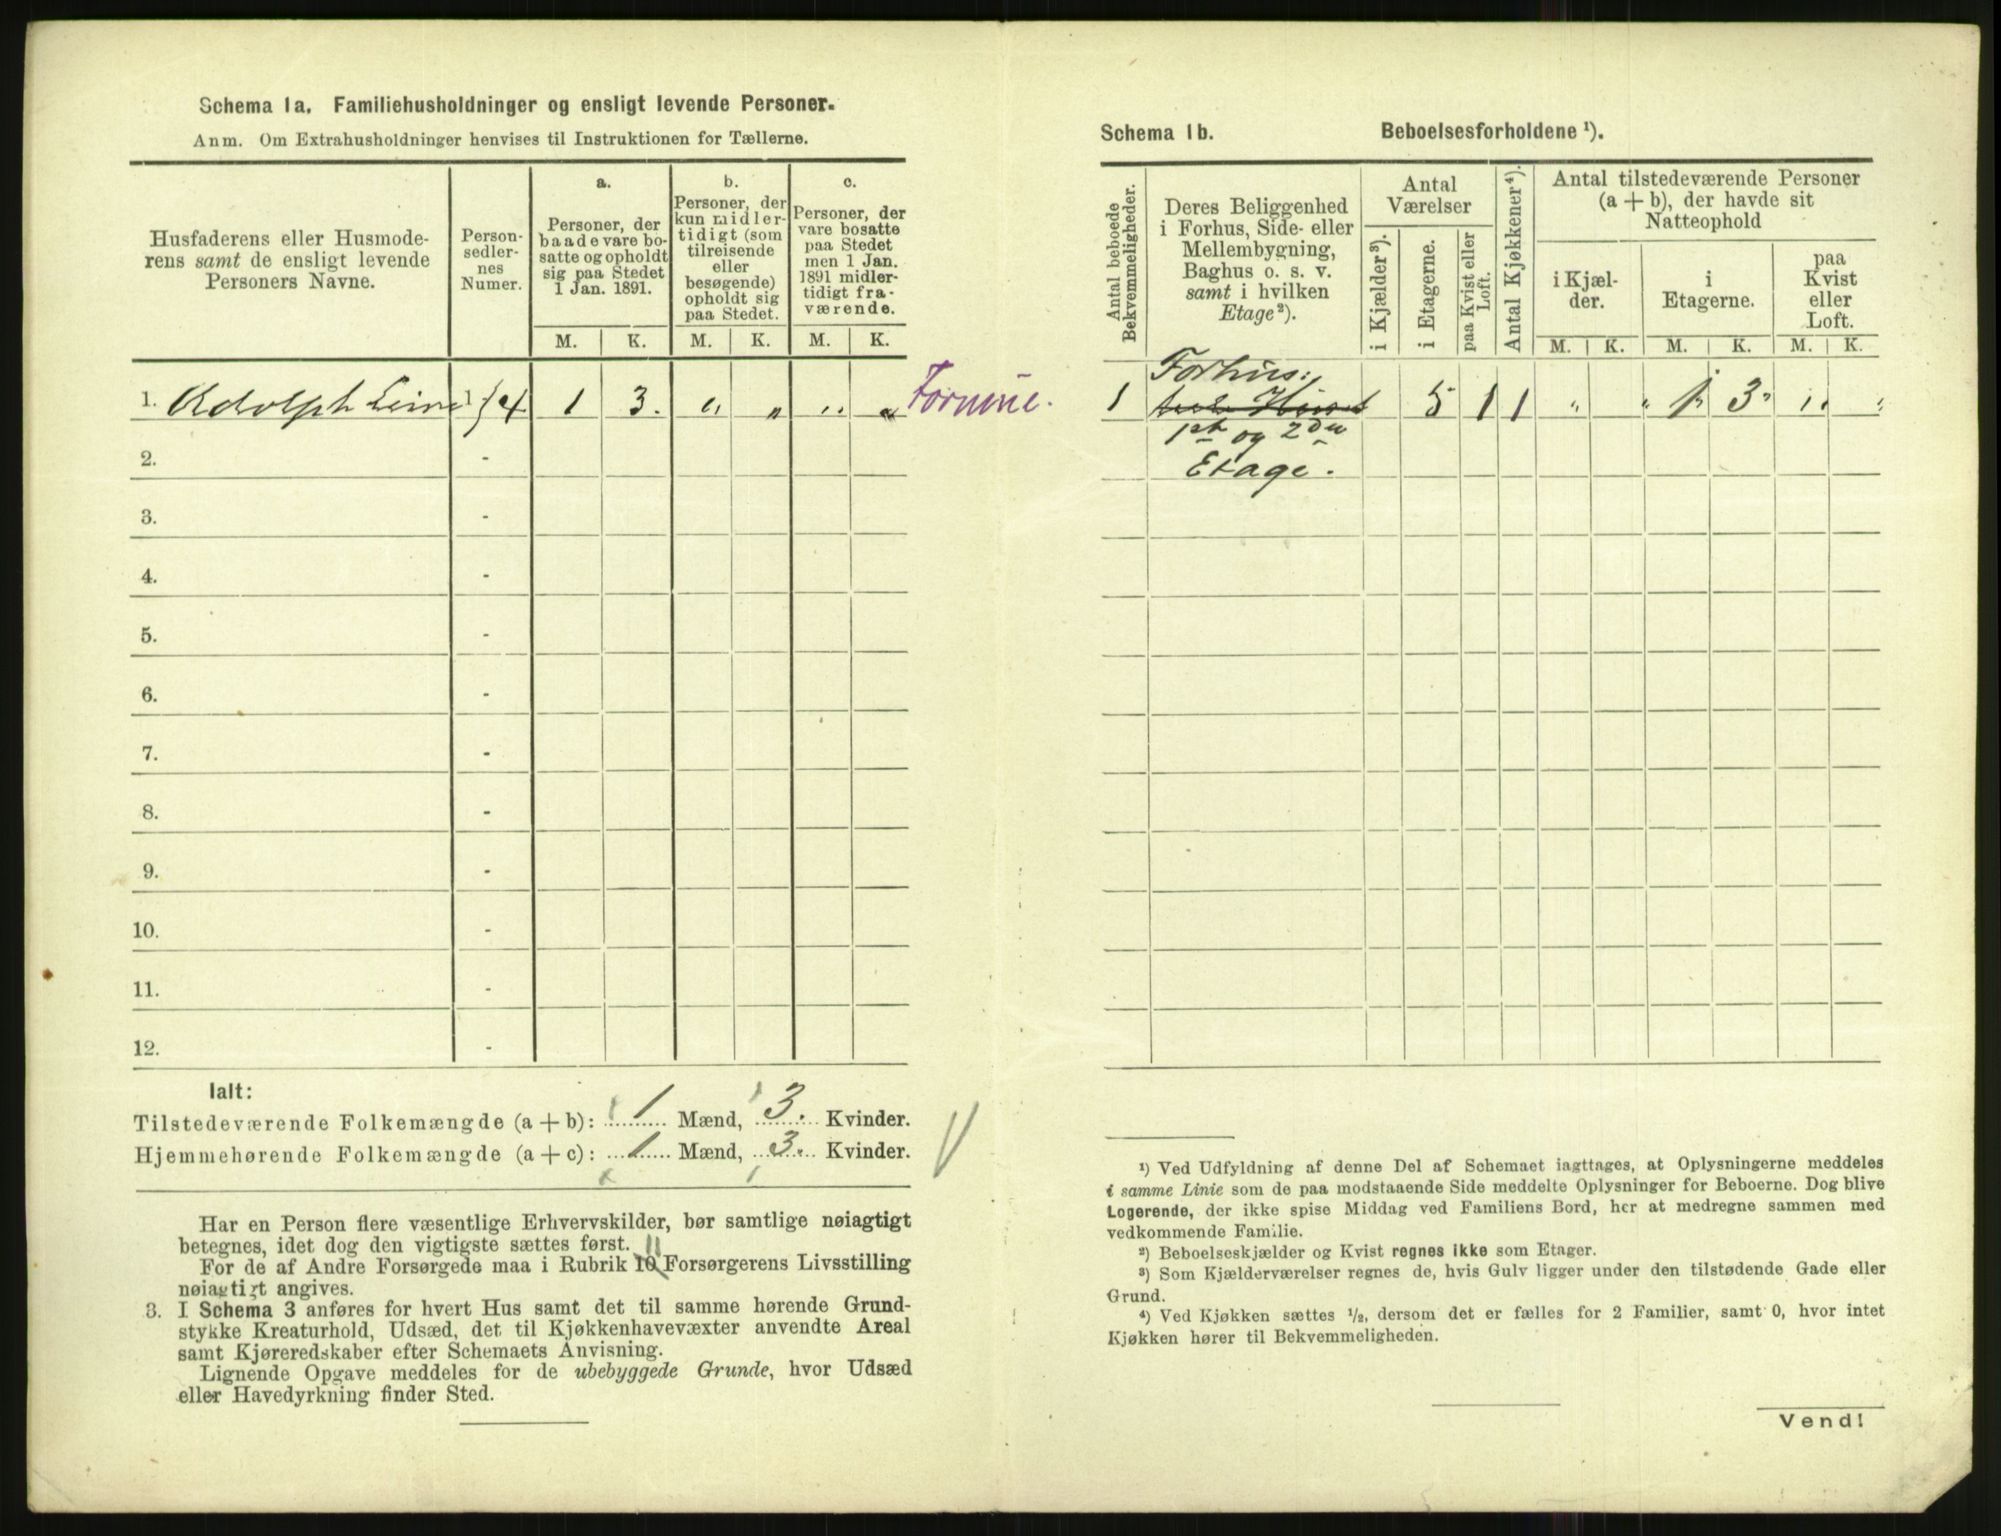 Schema 1a. Familiehusholdninger og ensligt levende Personer.
Anm. Om Extrahusholdninger henvises til Instruktionen for Tællerne.
Husfaderens eller Husmode-
rens samt de ensligt levende
Personers Navne.
Person-
sedler-
nes
Numer.
a.
Personer, der
baade vare bo-
satte og opholdt
sig paa Stedet
1 Jan. 1891.
b.
Personer, der
kun midler-
tidigt (som
tilreisende
eller
besøgende)
opholdt sig
paa Stedet.
c.
Personer, der
vare bosatte
paa Stedet
men 1 Jan.
1891 midler-
tidigt fra-
værende.
M. K. M. K. M. K.
1. Adolph 1 4 1 3. " " " "
2. -
3. -
4. -
5. -
6. -
7. -
8. -
9. -
10. -
11. -
12. -
Ialt:
Tilstedeværende Folkemængde (a + b): 1 Mænd, 3. Kvinder.
Hjemmehørende Folkemængde (a + c): 1 Mænd, 3. Kvinder.
Har en Person flere væsentlige Erhvervskilder, bør samtlige nøiagtigt
betegnes, idet dog den vigtigste sættes først.
11
For de af Andre Forsørgede maa i Rubrik 10 Forsørgerens Livsstilling
nøiagtigt angives.
3. I Schema 3 anføres for hvert Hus samt det til samme hørende Grund-
stykke Kreaturhold, Udsæd, det til Kjøkkenhavevæxter anvendte Areal
samt Kjøreredskaber efter Schemaets Anvisning.
Lignende Opgave meddeles for de ubebyggede Grunde, hvor Udsæd
eller Havedyrkning finder Sted.
Schema 1b. Beboelsesforholdene ¹).
Antal beboede
Bekvemmeligheder.
Deres Beliggenhed
i Forhus, Side- eller
Mellembygning,
Baghus o. s. v.
samt i hvilken
Etage²).
Antal
Værelser
i Kjælder³).
i Etagerne.
paa Kvist eller
Loft.
Antal Kjøkkener⁴).
Antal tilstedeværende Personer
(a + b), der havde sit
Natteophold
i Kjæl-
der.
i
Etagerne.
paa
Kvist
eller
Loft.
M. K. M. K. M. K.
Forhus:
1 5 1 1 " " 1 3 " "
1ste og 2den
Etage.
¹) Ved Udfyldning af denne Del af Schemaet iagttages, at Oplysningerne meddeles
i samme Linie som de paa modstaaende Side meddelte Oplysninger for Beboerne. Dog blive
Logerende, der ikke spise Middag ved Familiens Bord, her at medregne sammen med
vedkommende Familie.
²) Beboelseskjælder og Kvist regnes ikke som Etager.
³) Som Kjælderværelser regnes de, hvis Gulv ligger under den tilstødende Gade eller
Grund.
⁴) Ved Kjøkken sættes ½, dersom det er fælles for 2 Familier, samt 0, hvor intet
Kjøkken hører til Bekvemmeligheden.
Vend!